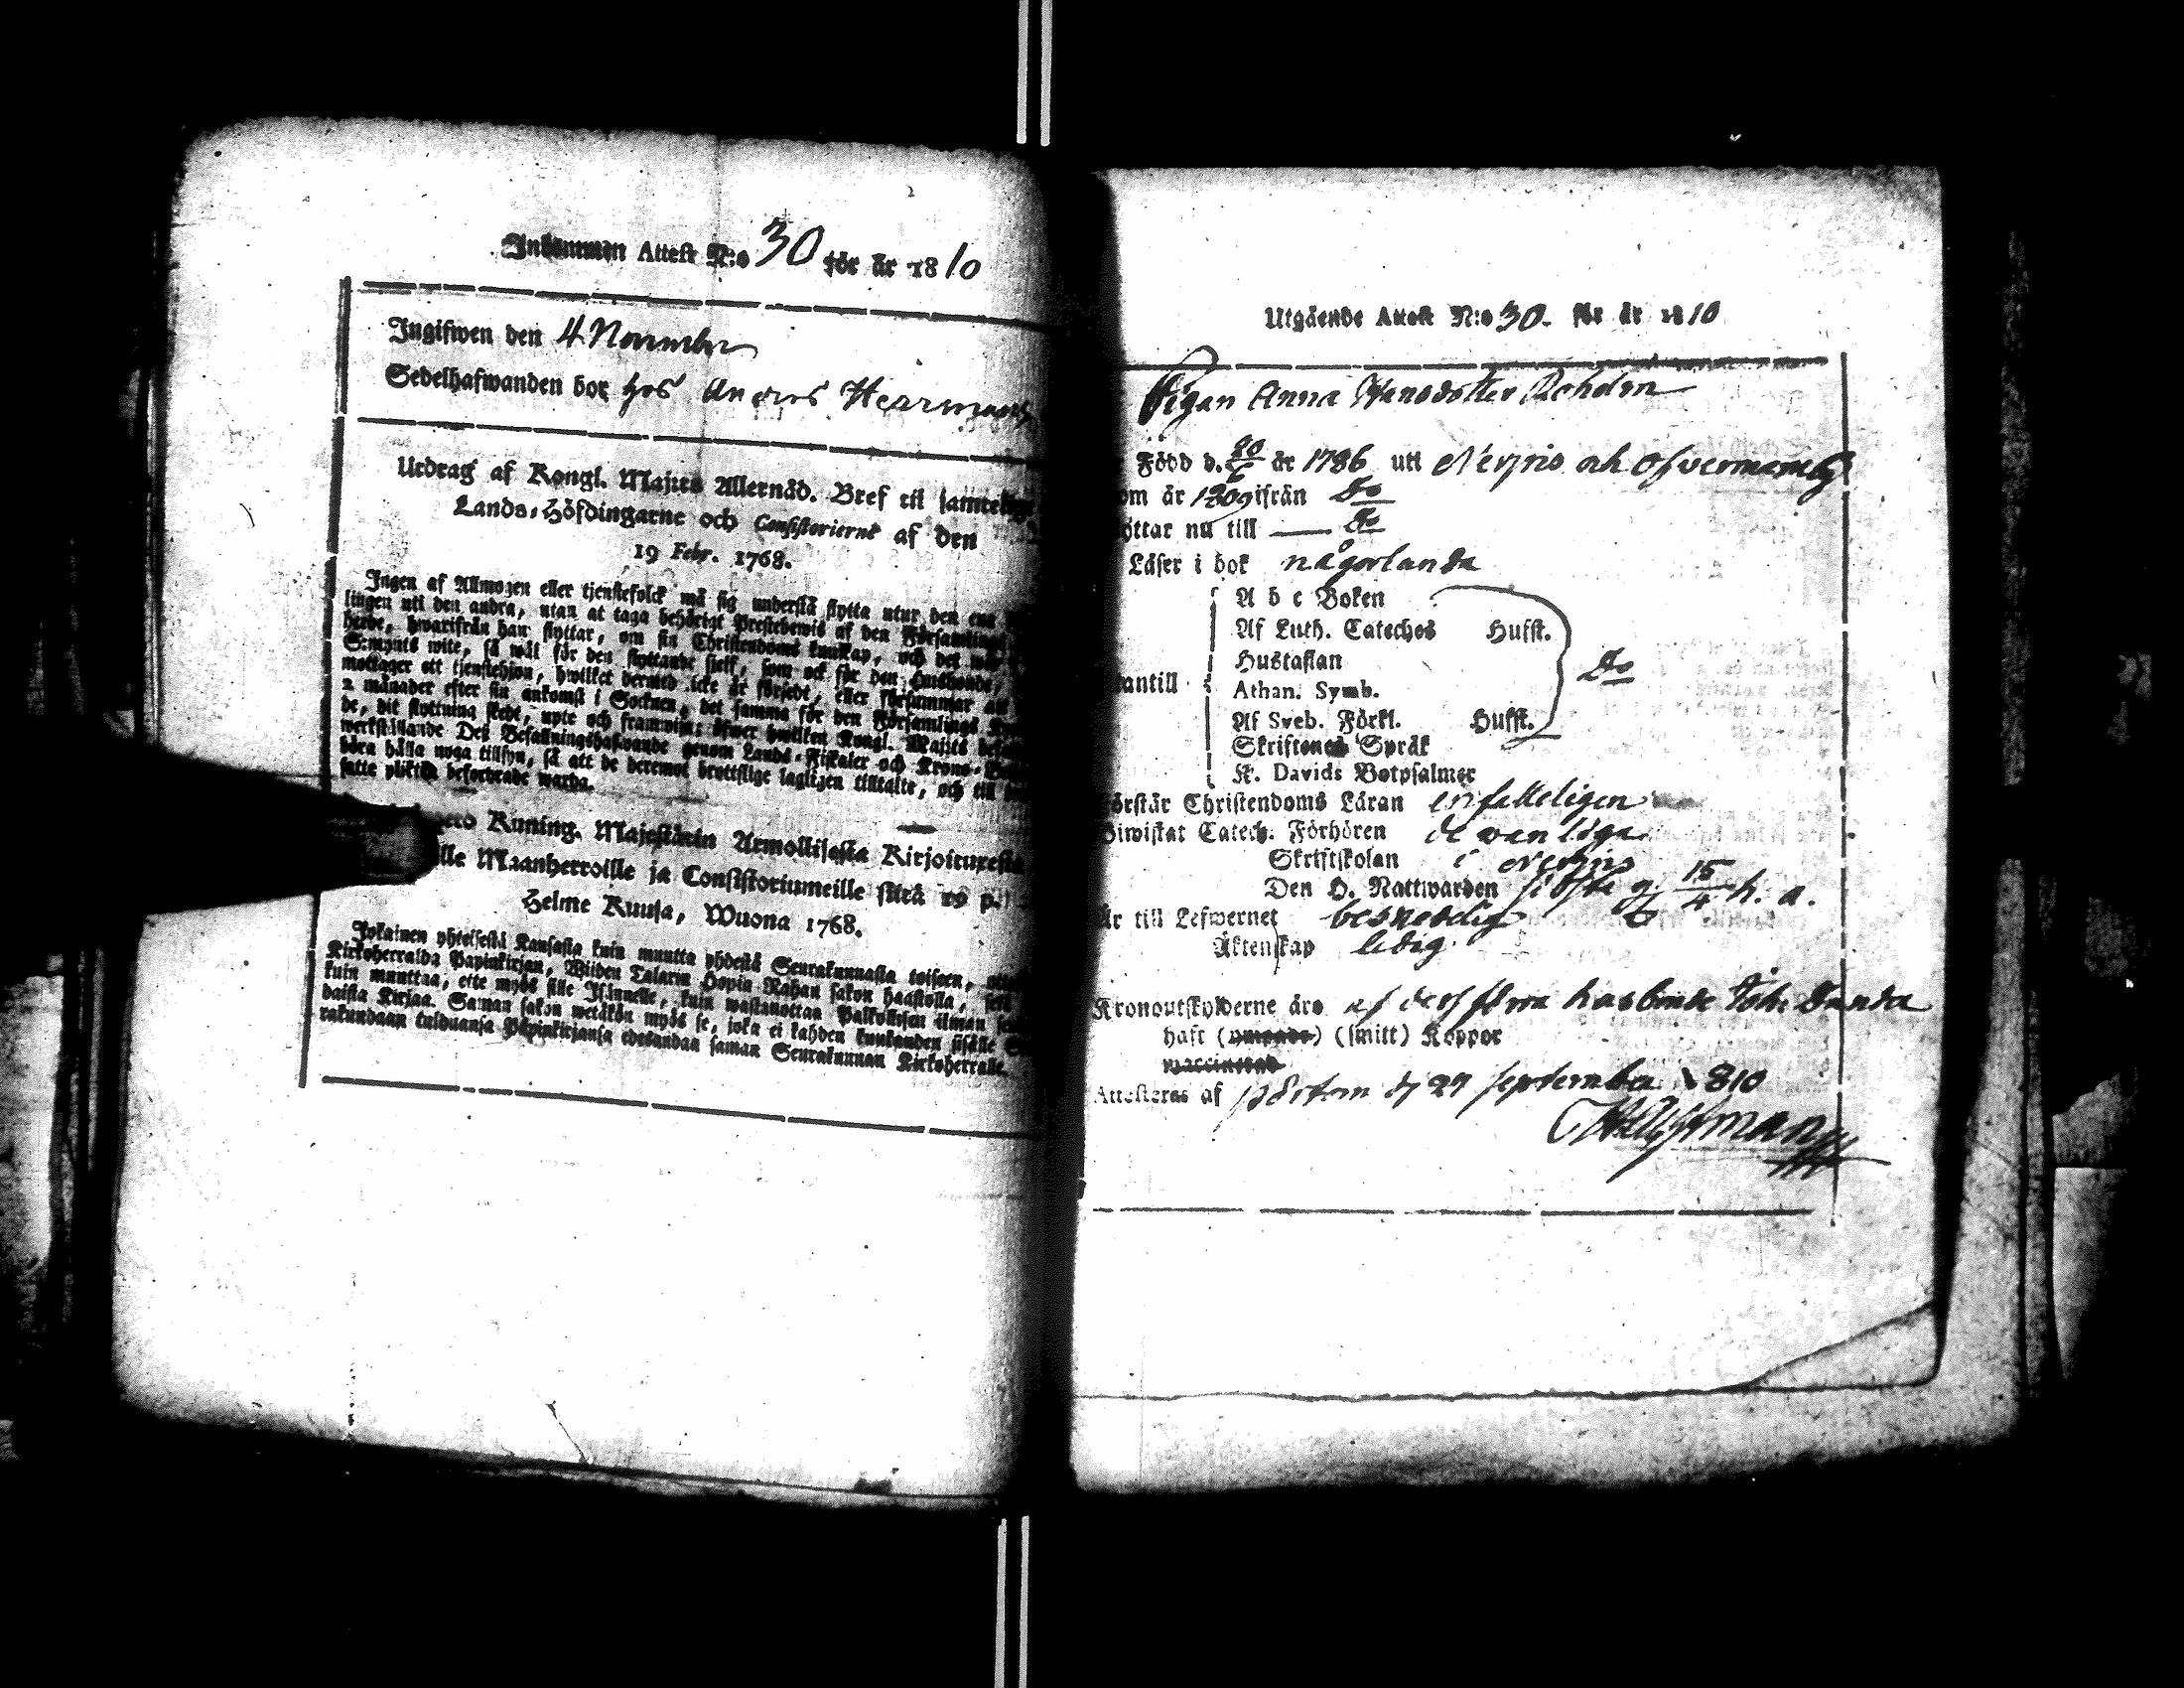 Inkommen Attest N:o 30 för år 1810
Ingifwen den 4 November
Sedelhafwanden bor hos Anders Herrmans
Utdrag af Kongl. Maj:tes Allernåd. Bref til samtelige
Lands-Höfdingarne och Consistorierne af den
19 Febr. 1768.
Ingen af Allmogen eller tjenstefolck må sig understå flytta utur den ena
lingen uti den andra, utan at taga behörigt Prestebewis af den Församlings
herde, hwarifrån han flyttar, om sin Christendoms kunskap, och det wid
S:mynts wite, så wäl för den flyttande sielf, som ock för den Husbonde,
mottager ett tjenstehjon, hwilket dermed icke är försedt, eller försummar att
2 månader efter sin ankomst i Socknen, det samma för den Församlings
de, dit flyttning skedt, upte och framwisa; öfwer hwilket Kongl. Maj:ts
werkställande Des Befallningshafwande genom Lands-Fiskaler och Krono-
böra hålla noga tillsyn, så att de deremot brottslige lagligen tilltalte, och till
satte plikten befordrade warda.
Kuning. Majestätin Armollisesta Kirjoituxesta
ille Maanherroille ja Consistoriumeille siitä 19 p.
Helme Kuusa, Wuona 1768.
Jokainen yhteisestä Kansasta kuin muutta yhdestä Seurakunnasta toiseen,
Kirkoherralda Papinkirjan, Wiiden Talarin Hopia Rahan sakon haastolla,
kuin muuttaa, ette myös sille Isännelle, kuin wastanottaa Palkollisen ilman
daista Kirjaa. Saman sakon wetäkön myös se, joka ei kahden kuukauden sisälle
rakundaan tulduansa Päpinkirjansa edesandaa saman Seurakunnan Kirkoherralle.
Utgående Attest N:o 30. för år 1810
Pigan Anna Hansdotter
Född d. 20/6 år 1786 uti och Ofvermark
om år 1809 ifrån Do
öttar nu till — Do
Läser i bok någorlunda
A b c Boken
Af Luth. Cateches Husst.
Hustaflan
antill Do
Athan. Symb.
Af Sveb. Förkl. Husst.
Skriftenes Språk
K. Davids Botpsalmer
örstår Christendoms Läran enfalleligen
Biwistat Catech. Förhören de wanliga
Skriftskolan i
Den H. Nattwarden sidst 15/4 h. a.
Är till Lefwernet beskedelig
Äktenskap ledig
Kronoutskylderne äro af dess förra husbonde Joh:
haft (umgåde) (smitt) Koppor
waccinerad
Attesteras af Pörtom d 27 September 1810